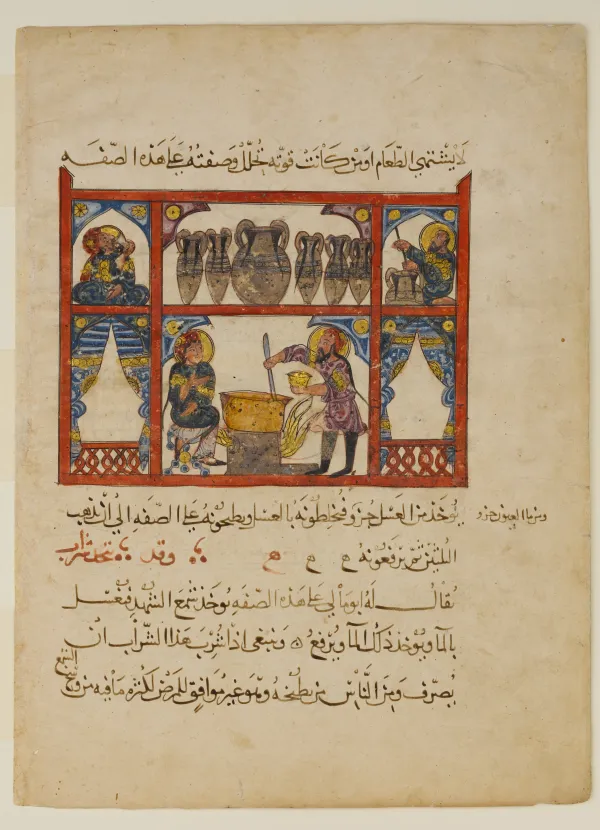 لا يشتهي الطعام او من كانت قوته تحلل وصفته على هذه الصفه
يوخذ من العسل جزو فيخلطونه بالعسل ويطبخونه على الصفه الى ان يذهب
ومن ما العيون جزو
ثم يرفعونه
يقال له ابومالي على هذه الصفه يوخذ شمع الشهد فيغسل
بالما ويوخذ ذلك الما ويرفع وينبغي اذا شرب هذا الشراب ان
يصرف ومن الناس من يطبخه وهو غير موافق للمرض لكثرة ما فيه من